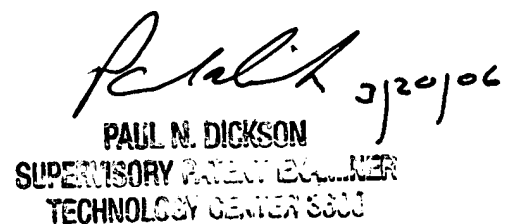 3/20/06
PAUL N. DICKSON
SUPERVISORY PATENT EXAMINER
TECHNOLOGY CENTER